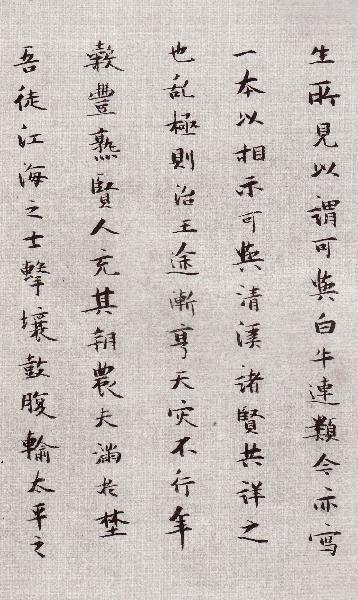 生所見以謂可與白牛連類今亦寫
一本以相示可與清溪諸賢共詳之
也乱極則治王途漸亨天灾不行年
穀豐熟賢人充其朝農夫滿於埜
吾徒江海之士擊壤鼓腹輸太平之